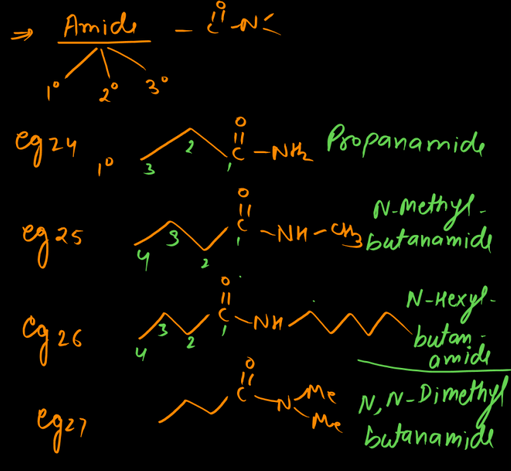 ⇒ Amide - C(=O) - N
1° 2° 3°
eg 24 1° 3 2 1 O || C - NH2 Propanamide
eg 25 4 3 2 1 O || C - NH - CH3 N-Methyl-
butanamide
eg 26 4 3 2 1 O || C - NH N-Hexyl-
butan-
amide
eg 27 O || C - N Me Me N,N-Dimethyl
butanamide